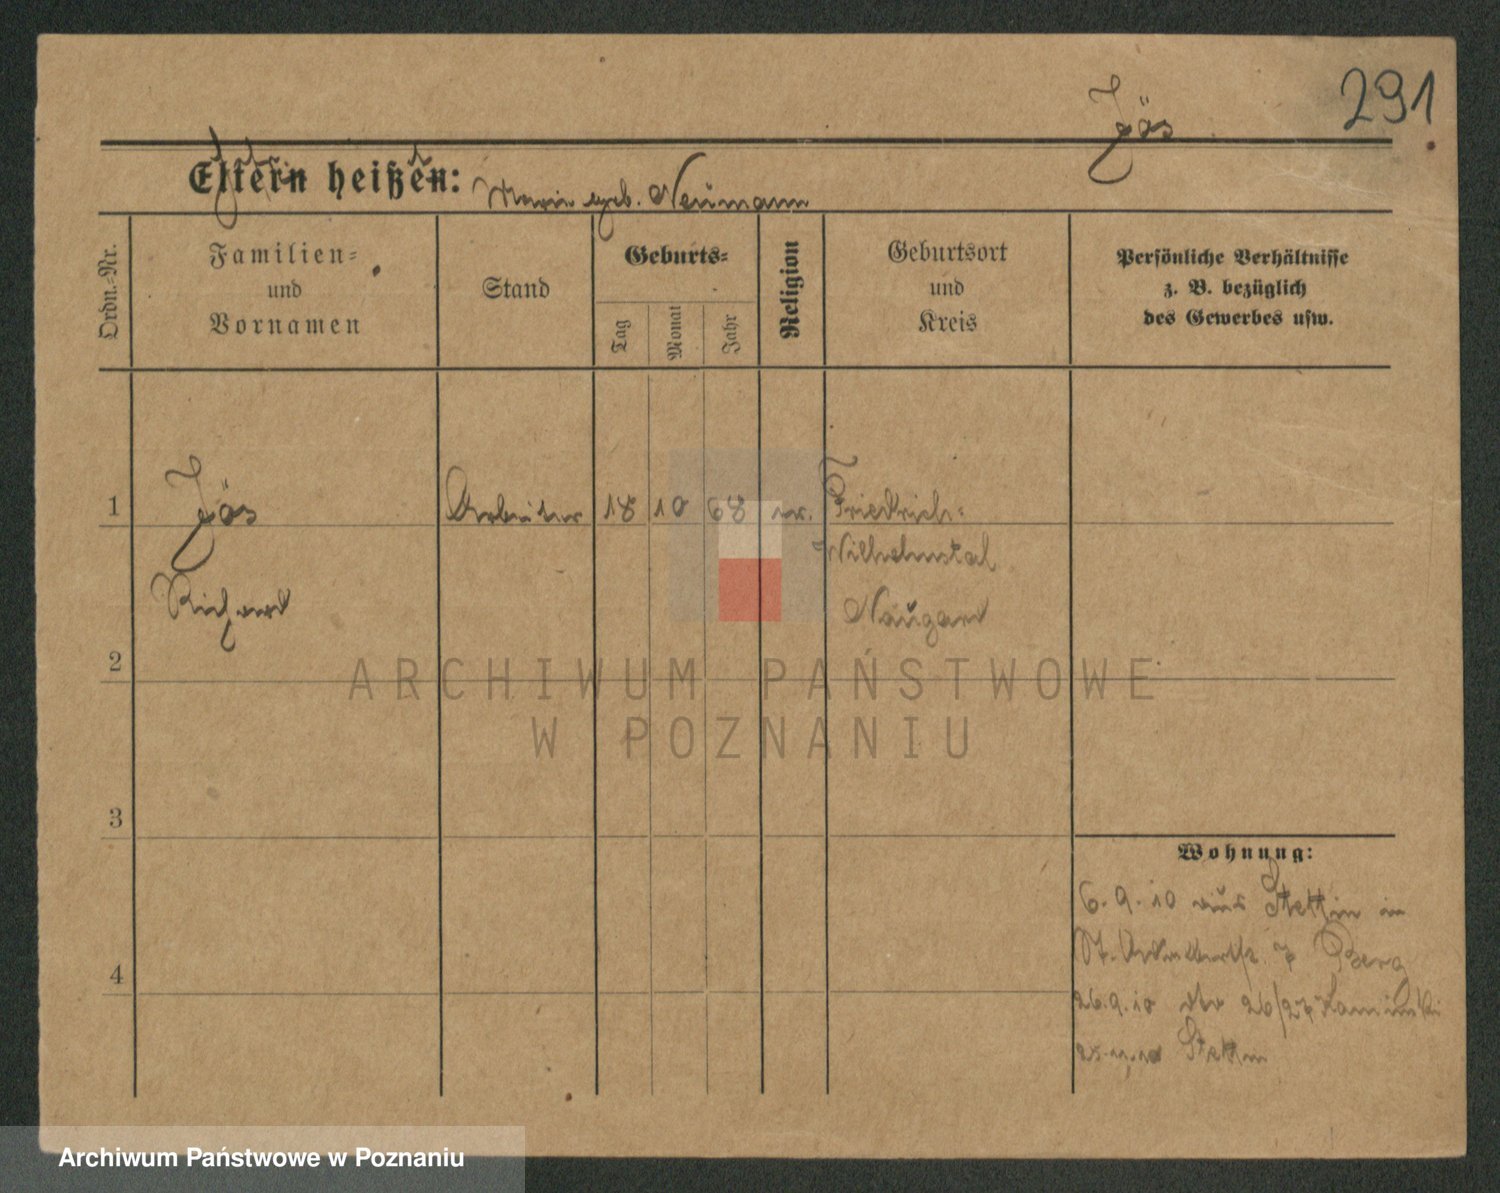 291
Jös
Eltern heißen:
Marie geb. Neumann
Ordn.-Nr.
Familien-
und
Vornamen
Stand
Geburts-
Tag
Monat
Jahr
Religion
Geburtsort
und
Kreis
Persönliche Verhältnisse
z. B. bezüglich
des Gewerbes usw.
1 Jös Arbeiter 18 10 68 ev. Friedrich-
Wilhelmstal
Richard Naugard
2
ARCHIWUM PAŃSTWOWE
W POZNANIU
3
Wohnung:
6.9.10 aus Stettin in
St. 7 Berg
4
26.9.10 26/27 Kaminski
Stettin
Archiwum Państwowe w Poznaniu